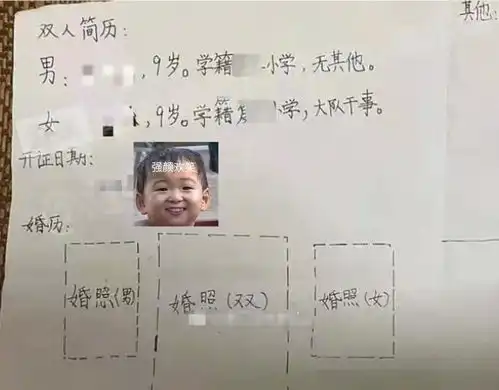 双人简历:
其他:
男: ,9岁。学籍 小学,无其他。
女 ,9岁。学籍 小学,大队干事。
开证日期:
强颜欢笑
婚历:
婚照(男)
婚照(双)
婚照(女)